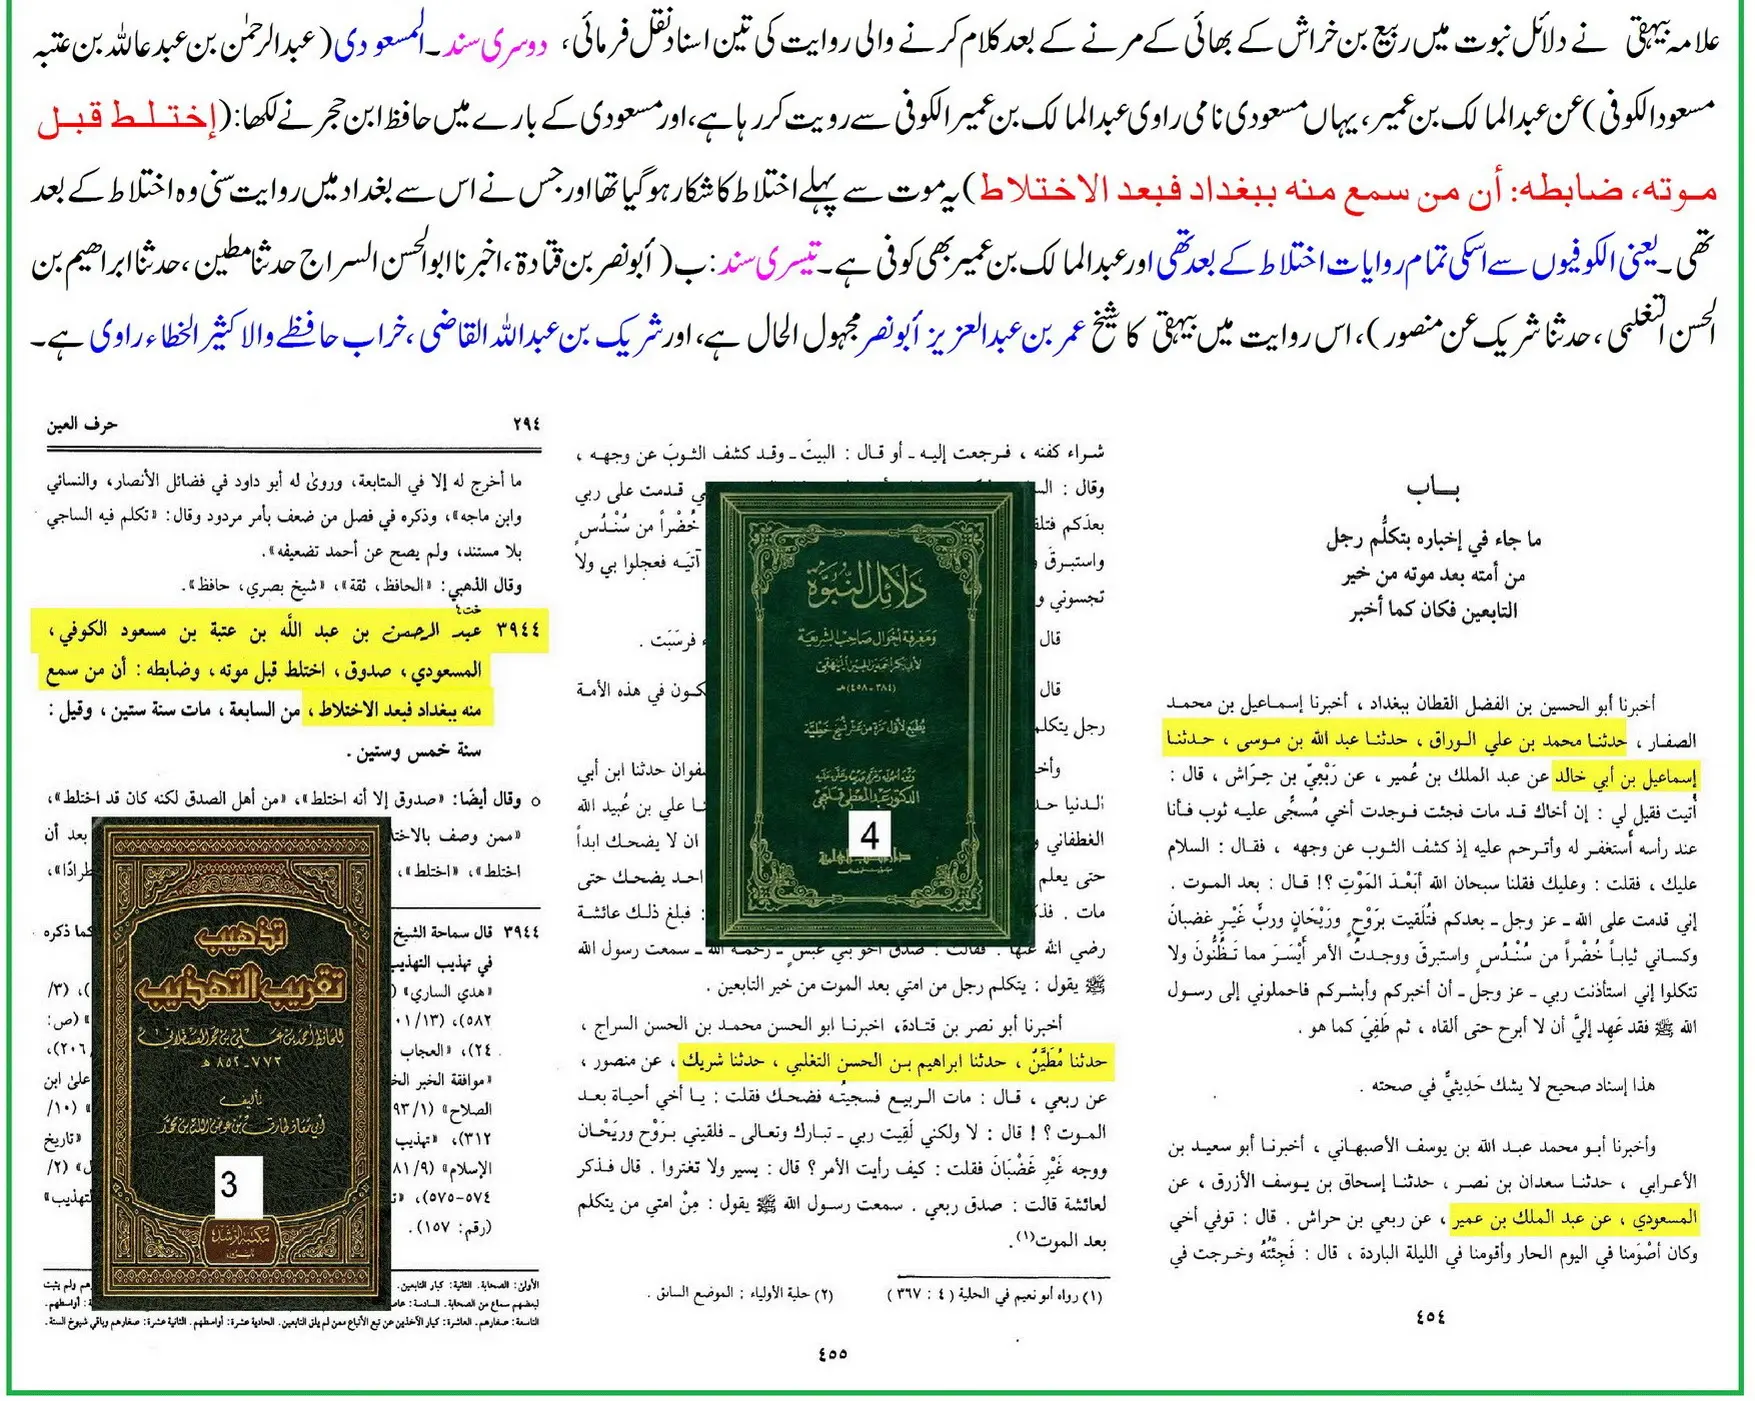 علامہ بیہقی نے دلائل نبوت میں ربیع بن خراش کے بھائی کے مرنے کے بعد کلام کرنے والی روایت کی تین اسناد نقل فرمائی، دوسری سند۔المسعودی(عبدالرحمٰن بن عبدعاللہ بن عتبہ
مسعود الکوفی)عن عبدالمالک بن عمیر، یہاں مسعودی نامی راوی عبدالمالک بن عمیر الکوفی سے رویت کررہا ہے،اور مسعودی کے بارے میں حافظ ابن حجر نے لکھا:(إختلط قبل
موته، ضابطه: أن من سمع منه ببغداد فبعد الاختلاط)یہ موت سے پہلے اختلاط کا شکار ہوگیا تھا اور جس نے اس سے بغداد میں روایت سنی وہ اختلاط کے بعد
تھی۔یعنی الکوفیوں سے اسکی تمام روایات اختلاط کے بعد تھی اور عبدالمالک بن عمیر بھی کوفی ہے۔تیسری سند:ب(أبونصر بن قتادة،اخبرنا ابوالحسن السراج حدثنا مطین،حدثنا ابراھیم بن
الحسن التغلبی،حدثنا شریک عن منصور)،اس روایت میں بیہقی کا شیخ عمر بن عبدالعزیز أبونصر مجہول الحال ہے،اور شریک بن عبداللہ القاضی،خراب حافظے والا کثیر الخطاء راوی ہے۔
باب
ما جاء في إخباره بتكلُّم رجل
من أمته بعد موته من خير
التابعين فكان كما أخبر
أخبرنا أبو الحسين بن الفضل القطان ببغداد ، أخبرنا إسماعيل بن محمد
الصفار ، حدثنا محمد بن علي الوراق ، حدثنا عبد الله بن موسى ، حدثنا
إسماعيل بن أبي خالد عن عبد الملك بن عُمير ، عن رَبْعِيّ بن حِرَاش ، قال :
أتيت فقيل لي : إن أخاك قد مات فجئت فوجدت أخي مُسجًّى عليه ثوب فأنا
عند رأسه أستغفر له وأترحم عليه إذ كشف الثوب عن وجهه ، فقال : السلام
عليك ، فقلت : وعليك فقلنا سبحان الله أبَعْدَ المَوْتِ ؟! قال : بعد الموت .
إني قدمت على الله ـ عز وجل ـ بعدكم فتُلَقيت بِرَوْحٍ وَرَيْحَانٍ وربٍّ غَيْرِ غضبانَ
وكساني ثياباً خُضْراً من سُنْدُسٍ واستبرقَ ووجدتُ الأمر أيْسَرَ مما تَظُنُّونَ ولا
تتكلوا إني استأذنت ربي ـ عز وجل ـ أن أخبركم وأبشركم فاحملوني إلى رسول
الله ﷺ فقد عَهِد إليَّ أن لا أبرح حتى ألقاه ، ثم طَفِيَ كما هو .
هذا إسناد صحيح لا يشك حَدِيثيٌّ في صحته .
وأخبرنا أبو محمد عبد الله بن يوسف الأصبهاني ، أخبرنا أبو سعيد بن
الأعرابي ، حدثنا سعدان بن نصر ، حدثنا إسحاق بن يوسف الأزرق ، عن
المسعودي ، عن عبد الملك بن عمير ، عن ربعي بن حراش . قال : توفي أخي
وكان أصْوَمنا في اليوم الحار وأقومنا في الليلة الباردة ، قال : فَجِئْتُهُ وخرجت في
٤٥٤
شراء كفنه ، فرجعت إليه ـ أو قال : البيتَ ـ وقد كشف الثوبَ عن وجهه ،
وقال : قدمت على ربي
بعدَكم خُضْراً من سُنْدُسٍ
واستبرقَ آتيَه فعجلوا بي ولا
تجسوني
قال فرسَبَت .
قال تكون في هذه الأمة
رجل يتكلم
صفوان حدثنا ابن أبي
الدنيا علي بن عُبيد الله
الغطفاني ان لا يضحك ابداً
حتى يعلم احد يضحك حتى
مات . : فبلغ ذلك عائشة
رضي الله عنها . فقالت : صدق أخو بني عبس ـ رحمه الله ـ سمعت رسول الله
ﷺ يقول : يتكلم رجل من امتي بعد الموت من خير التابعين .
أخبرنا أبو نصر بن قتادة، اخبرنا ابو الحسن محمد بن الحسن السراج ،
حدثنا مُطَيَّنٌ ، حدثنا ابراهيم بن الحسن التغلبي ، حدثنا شريك ، عن منصور ،
عن ربعي ، قال : مات الربيع فسجيتُه فضحك فقلت : يا أخي أحياة بعد
الموت ؟ ! قال : لا ولكني لَقِيت ربي ـ تبارك وتعالى ـ فلقيني بِرَوْح وريَحْان
ووجه غَيْرِ غَضْبَانَ فقلت : كيف رأيت الأمر؟ قال : يسير ولا تغتروا . قال فذكر
لعائشة قالت : صدق ربعي . سمعت رسول الله ﷺ يقول : مِنْ امتي من يتكلم
بعد الموت(١).
(١) رواه أبو نعيم في الحلية ( ٤ : ٣٦٧ ) (٢) حلية الأولياء : الموضع السابق .
٤٥٥
دلائل النبوة
ومعرفة أحوال صاحب الشريعة
لأبي بكر أحمد بن الحسين البيهقي
(٣٨٤ - ٤٥٨) هـ
يطبع لأول مرة عن عشر نسخ خطية
وثق أصوله وخرج حديثه وعلق عليه
الدكتور عبد المعطي قلعجي
4
٢٩٤ حرف العين
ما أخرج له إلا في المتابعة، وروىٰ له أبو داود في فضائل الأنصار، والنسائي
وابن ماجه»، وذكره في فصل من ضعف بأمر مردود وقال: «تكلم فيه الساجي
بلا مستند، ولم يصح عن أحمد تضعيفه».
وقال الذهبي: «الحافظ، ثقة»، «شيخ بصري، حافظ».
خت٤
٣٩٤٤ عبد الرحمن بن عبد الله بن عتبة بن مسعود الكوفي،
المسعودي، صدوق، اختلط قبل موته، وضابطه: أن من سمع
منه ببغداد فبعد الاختلاط، من السابعة، مات سنة ستين، وقيل:
سنة خمس وستين.
○ وقال أيضًا: «صدوق إلا أنه اختلط»، «من أهل الصدق لكنه كان قد اختلط»،
«ممن وصف بالاختلاط بعد أن
اختلط»، «اختلط»،
٣٩٤٤ قال سماحة الشيخ كما ذكره
في تهذيب التهذيب
«هدي الساري» (٣/
٥٨٢)، (ص:
٢٤)، «العجاب ٢٠٦)،
«موافقة الخبر علىٰ ابن
الصلاح» (١٠/
٣١٢)، «تهذيب «تاريخ
الإسلام» (٢/
٥٧٤-٥٧٥)،
(رقم: ١٥٧).
الأولىٰ: الصحابة. الثانية: كبار التابعين.
لبعضهم سماع من الصحابة. السادسة: أوساطهم.
التاسعة: صغارهم. العاشرة: كبار الآخذين عن تبع الأتباع ممن لم يلق التابعين. الحادية عشرة: أوساطهم. الثانية عشرة: صغارهم وباقي شيوخ الستة.
تذهيب
تقريب التهذيب
للحافظ أحمد بن علي بن حجر العسقلاني
٧٧٣-٨٥٢ هـ
تأليف
أبي معاذ طارق بن عوض الله بن محمد
3
مكتبة الرشد
ناشرون